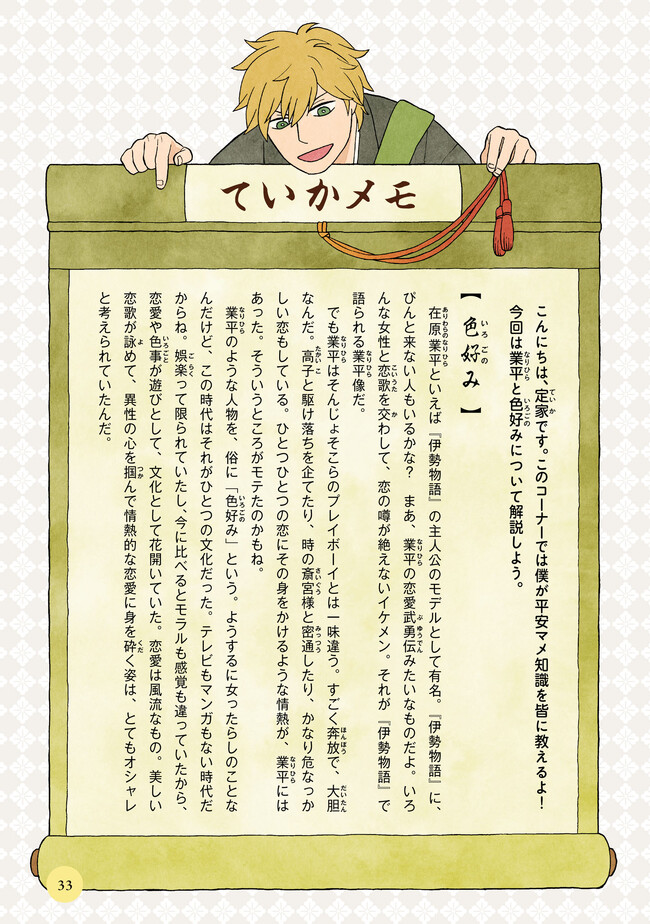 ていかメモ
こんにちは、定家です。このコーナーでは僕が平安マメ知識を皆に教えるよ！
今回は業平と色好みについて解説しよう。
【色好み】
在原業平といえば『伊勢物語』の主人公のモデルとして有名。『伊勢物語』に、
ぴんと来ない人もいるかな？　まあ、業平の恋愛武勇伝みたいなものだよ。いろ
んな女性と恋歌を交わして、恋の噂が絶えないイケメン。それが『伊勢物語』で
語られる業平像だ。
でも業平はそんじょそこらのプレイボーイとは一味違う。すごく奔放で、大胆
なんだ。高子と駆け落ちを企てたり、時の斎宮様と密通したり、かなり危なっか
しい恋もしている。ひとつひとつの恋にその身をかけるような情熱が、業平には
あった。そういうところがモテたのかもね。
業平のような人物を、俗に「色好み」という。ようするに女ったらしのことな
んだけど、この時代はそれがひとつの文化だった。テレビもマンガもない時代だ
からね。娯楽って限られていたし、今に比べるとモラルも感覚も違っていたから、
恋愛や色事が遊びとして、文化として花開いていた。恋愛は風流なもの。美しい
恋歌が詠めて、異性の心を掴んで情熱的な恋愛に身を砕く姿は、とてもオシャレ
と考えられていたんだ。
33